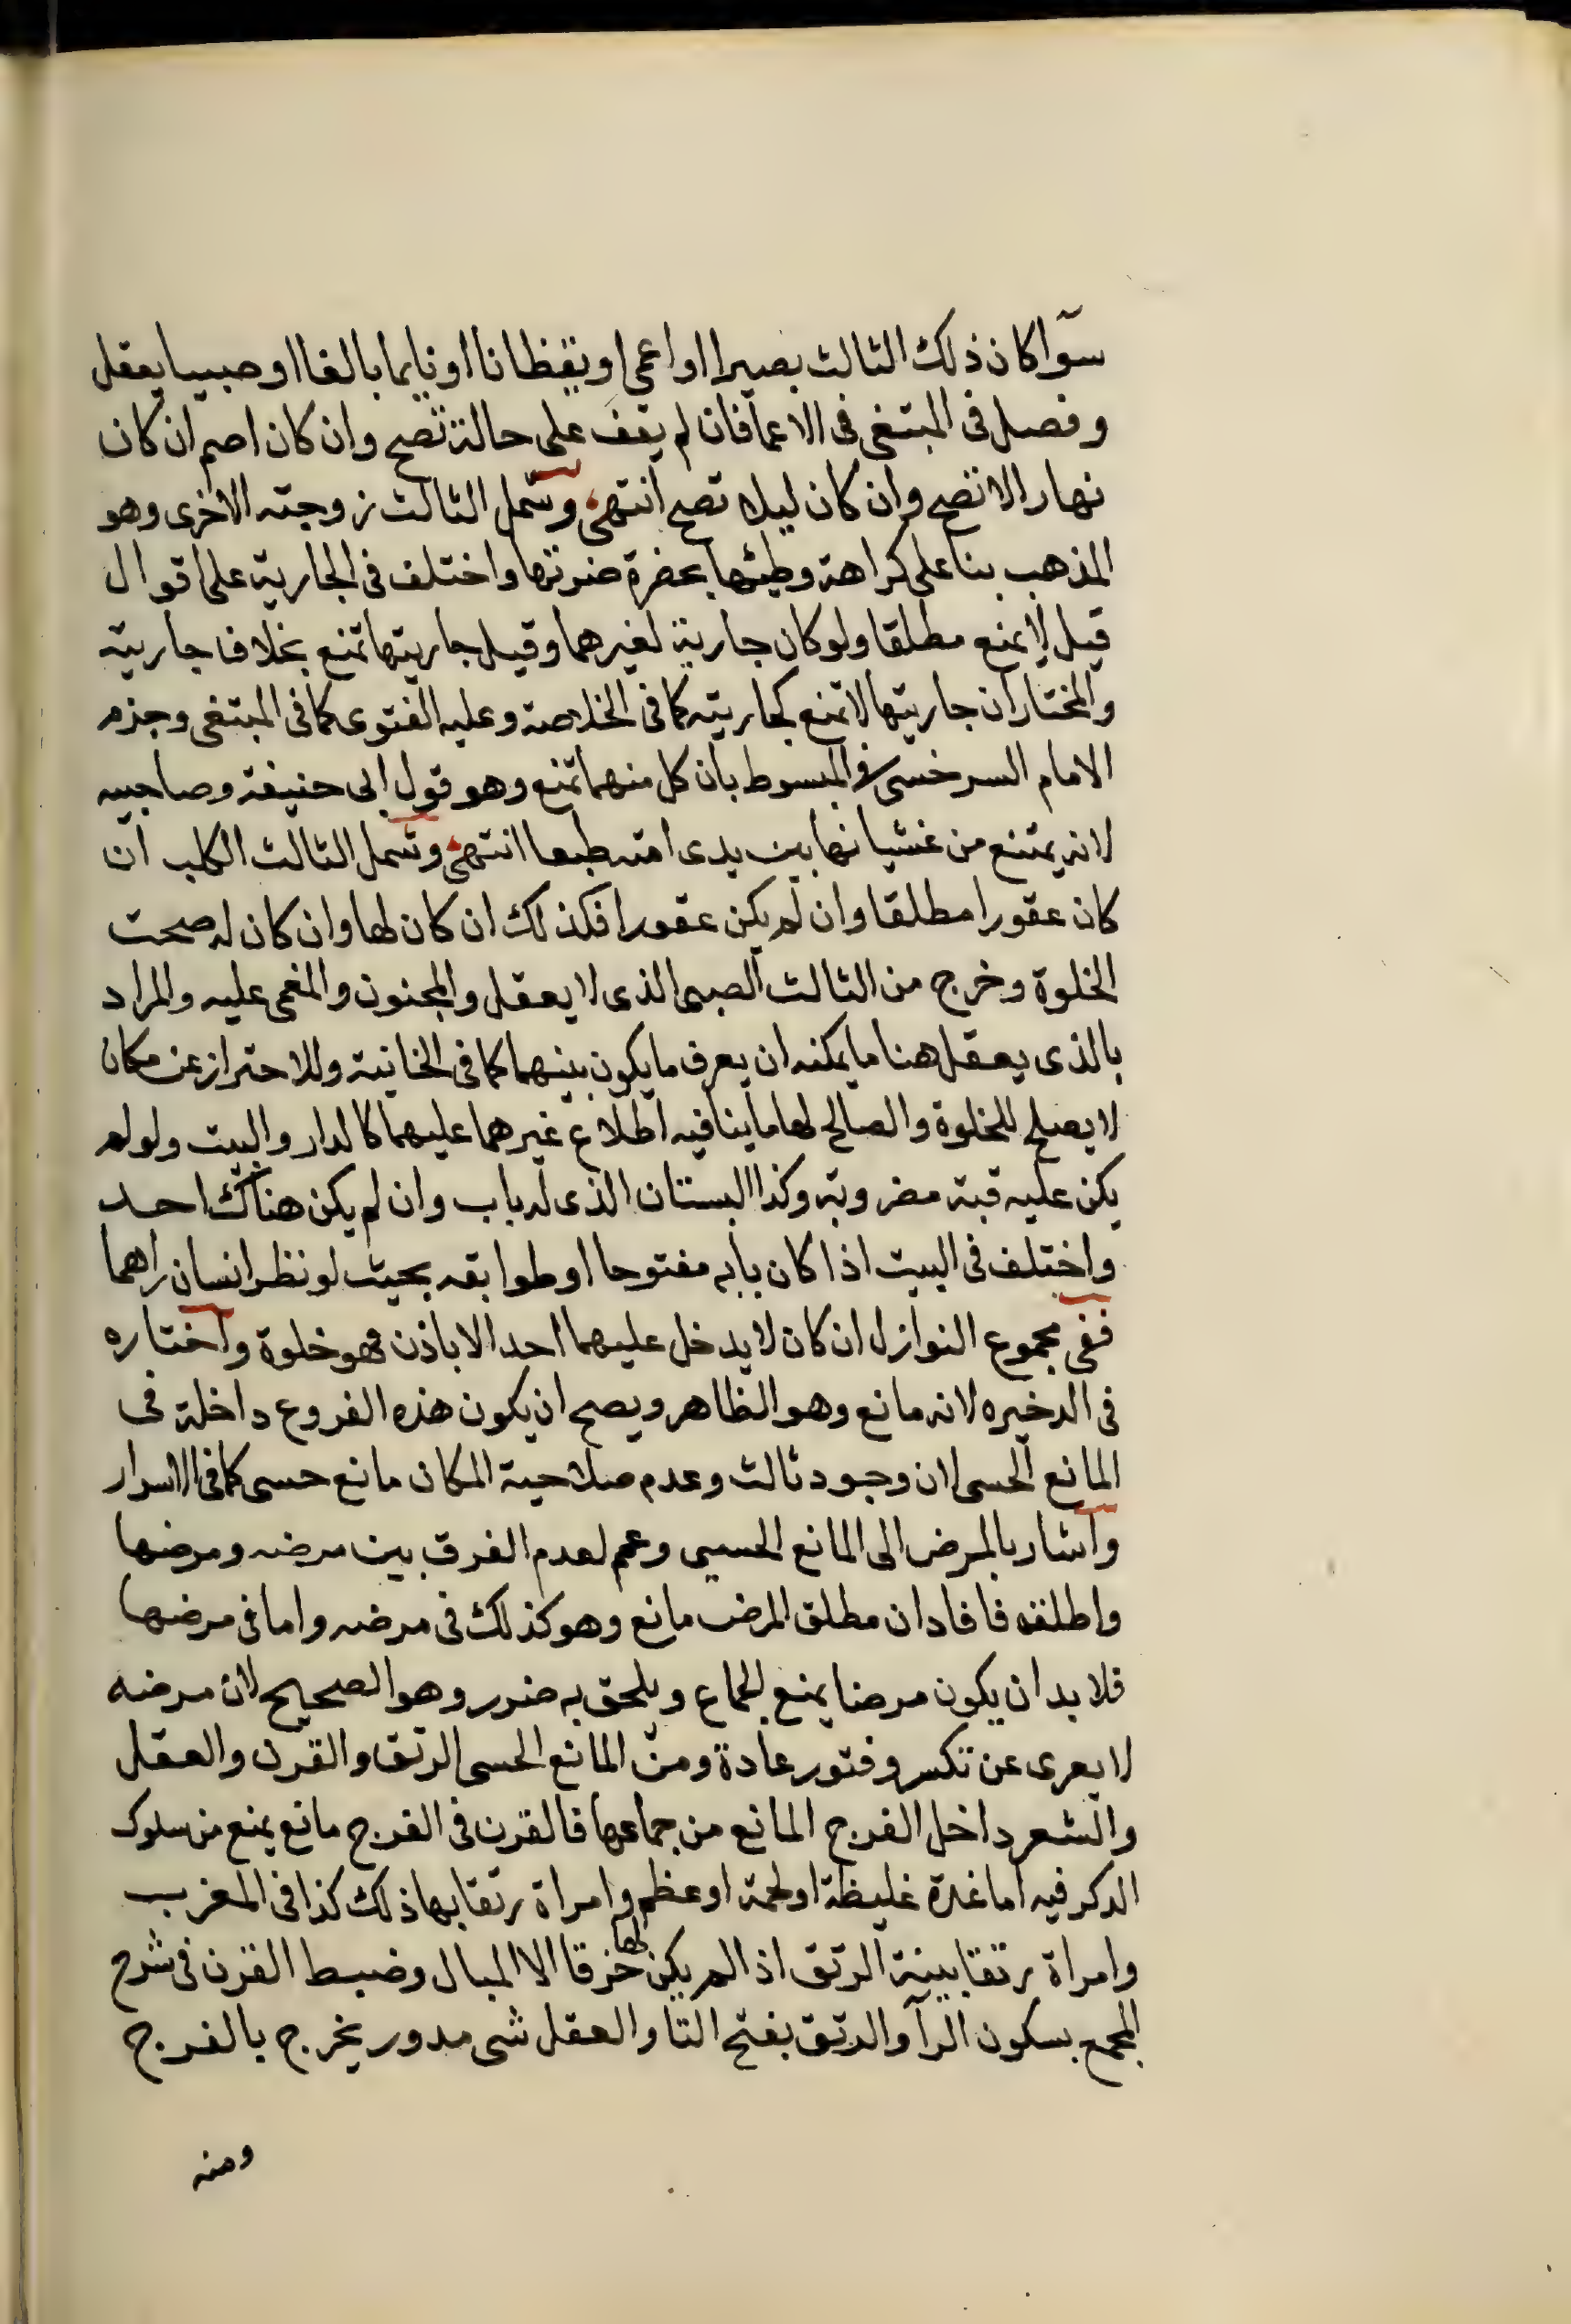 سوآ كان ذلك الثالث بصيرا او اعمى او يقظانا او نايما بالغا او صبيا يعقل
وفصل فى المبتغى فى الاعمآ فان لم يقف على حالة تصح وان كان اصم ان كان
نهارا لا تصح وان كان ليلا تصح انتهى وشمل الثالث زوجته الاخرى وهو
المذهب بنا على كراهة وطيها بحضرة ضرتها واختلف فى الجارية على اقوال
قيل لا يمنع مطلقا ولو كان جارية لغيرهما وقيل جاريتها تمنع بخلاف جاريته
والمختار ان جاريتها لا تمنع كجاريته كما فى الخلاصة وعليه الفتوى كما فى المبتغى وجزم
الامام السرخسى فى المبسوط بان كل منهما تمنع وهو قول ابى حنيفة وصاحبيه
لانه يمتنع من غشيانها بين يدى امته طبعا انتهى وشمل الثالث الكلب ان
كان عقورا مطلقا وان لم يكن عقورا فكذلك ان كان لها وان كان له صحت
الخلوة وخرج من الثالث الصبى الذى لا يعقل والمجنون والمغمى عليه والمراد
بالذى يعقل هنا ما يمكنه ان يعرف ما يكون بينهما كما فى الخانية وللاحتراز عن مكان
لا يصلح للخلوة والصالح لها ما ينافيه اطلاع غيرهما عليهما كالدار والبيت ولو لم
يكن عليه قبة مضروبة وكذا البستان الذى له باب وان لم يكن هناك احد
واختلف فى البيت اذا كان بابه مفتوحا او طوابقه بحيث لو نظر انسان راهما
ففى مجموع النوازل ان كان لا يدخل عليهما احد الا باذن فهو خلوة واختاره
فى الدخيره لانه مانع وهو الظاهر ويصح ان يكون هذه الفروع داخلة فى
المانع الحسى لان وجود ثالث وعدم صلاحية المكان مانع حسى كما فى الاسرار
واشار بالمرض الى المانع الحسى وعم لعدم الفرق بين مرضه ومرضها
واطلقه فافاد ان مطلق المرض مانع وهو كذلك فى مرضه واما فى مرضها
فلا بد ان يكون مرضا يمنع الجماع ويلحق به ضرر وهو الصحيح لان مرضه
لا يعرى عن تكسر وفتور عادة ومن المانع الحسى الرتق والقرن والعقل
والشعر داخل الفرج المانع من جماعها فالقرن فى الفرج مانع يمنع من سلوك
الدكر فيه اما غدة غليظة او لحمة او عظم وامراة رتقا بها ذلك كذا فى المغرب
وامراة رتقا بينة الرتق اذا لم يكن لها خرقا الا المبال وضبط القرن فى شرح
المجمع بسكون الرآ والرتق بفتح التا والعقل شى مدور يخرج بالفرج
ومنه